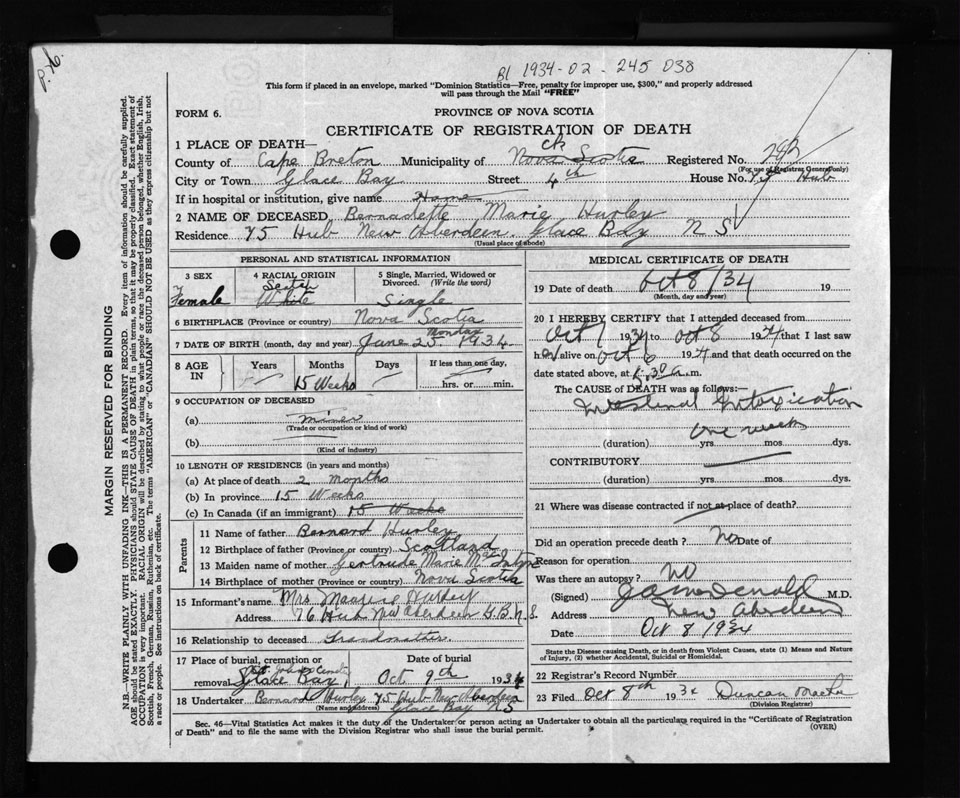 B1 1934-02-245 038
This form if placed in an envelope, marked "Dominion Statistics—Free, penalty for improper use, $300," and properly addressed
will pass through the Mail "FREE"
FORM 6.
PROVINCE OF NOVA SCOTIA
CERTIFICATE OF REGISTRATION OF DEATH
1 PLACE OF DEATH—
County of Cape Breton Municipality of Nova Scotia Registered No.
(For use of Registrar General only)
City or Town Glace Bay Street 4th House No. 75 Hub
If in hospital or institution, give name Home
2 NAME OF DECEASED Bernadette Marie Hurley
Residence 75 Hub New Aberdeen. Glace Bay N S
(Usual place of abode)
PERSONAL AND STATISTICAL INFORMATION
3 SEX
Female
4 RACIAL ORIGIN
Scotch
White
5 Single, Married, Widowed or
Divorced. (Write the word)
Single
6 BIRTHPLACE (Province or country) Nova Scotia
Monday
7 DATE OF BIRTH (month, day and year) June 25. 1934
8 AGE
IN
Years
Months
15 Weeks
Days
If less than one day,
hrs. or min.
9 OCCUPATION OF DECEASED
(a) miner
(Trade or occupation or kind of work)
(b)
(Kind of industry)
10 LENGTH OF RESIDENCE (in years and months)
(a) At place of death 2 months
(b) In province 15 Weeks
(c) In Canada (if an immigrant) 15 Weeks
Parents
11 Name of father Bernard Hurley
12 Birthplace of father (Province or country) Scotland
13 Maiden name of mother Gertrude Marie McIntyre
14 Birthplace of mother (Province or country) Nova Scotia
15 Informant's name Mrs Maurice Hurley
Address 76 Hub New Aberdeen G.B. N.S.
16 Relationship to deceased Grandmother.
17 Place of burial, cremation or
removal Glace Bay
Date of burial
Oct 9th 1934
18 Undertaker Bernard Hurley 75 Hub New Aberdeen
(Name and address) Glace Bay N S
MEDICAL CERTIFICATE OF DEATH
19 Date of death Oct 8/34 19
(Month, day and year)
20 I HEREBY CERTIFY that I attended deceased from
Oct 1 1934 to Oct 8 1934 that I last saw
her alive on Oct 6 1934 and that death occurred on the
date stated above, at 5.30 a.m.
The CAUSE of DEATH was as follows:—
Intestinal Intoxication
one week
(duration) yrs. mos. dys.
CONTRIBUTORY
(duration) yrs. mos. dys.
21 Where was disease contracted if not at place of death?
Did an operation precede death? No Date of
Reason for operation
Was there an autopsy? No
(Signed) M.D.
Address New Aberdeen
Date Oct 8 1934
State the Disease causing Death, or in death from Violent Causes, state (1) Means and Nature
of Injury, (2) whether Accidental, Suicidal or Homicidal.
22 Registrar's Record Number
23 Filed Oct 8th 1934 Duncan
(Division Registrar)
Sec. 46—Vital Statistics Act makes it the duty of the Undertaker or person acting as Undertaker to obtain all the particulars required in the "Certificate of Registration
of Death" and to file the same with the Division Registrar who shall issue the burial permit.
(OVER)
MARGIN RESERVED FOR BINDING
N.B.—WRITE PLAINLY WITH UNFADING INK—THIS IS A PERMANENT RECORD. Every item of information should be carefully supplied.
AGE should be stated EXACTLY. PHYSICIANS should STATE CAUSE OF DEATH in plain terms, so that it may be properly classified. Exact statement of
OCCUPATION is very important. RACIAL ORIGIN will be described by stating to what people or race the deceased person belonged, whether English, Irish,
Scottish, French, German, Russian, Ruthenian, etc. The terms "AMERICAN" or "CANADIAN" SHOULD NOT BE USED as they express citizenship but not
a race or people. See instructions on back of certificate.